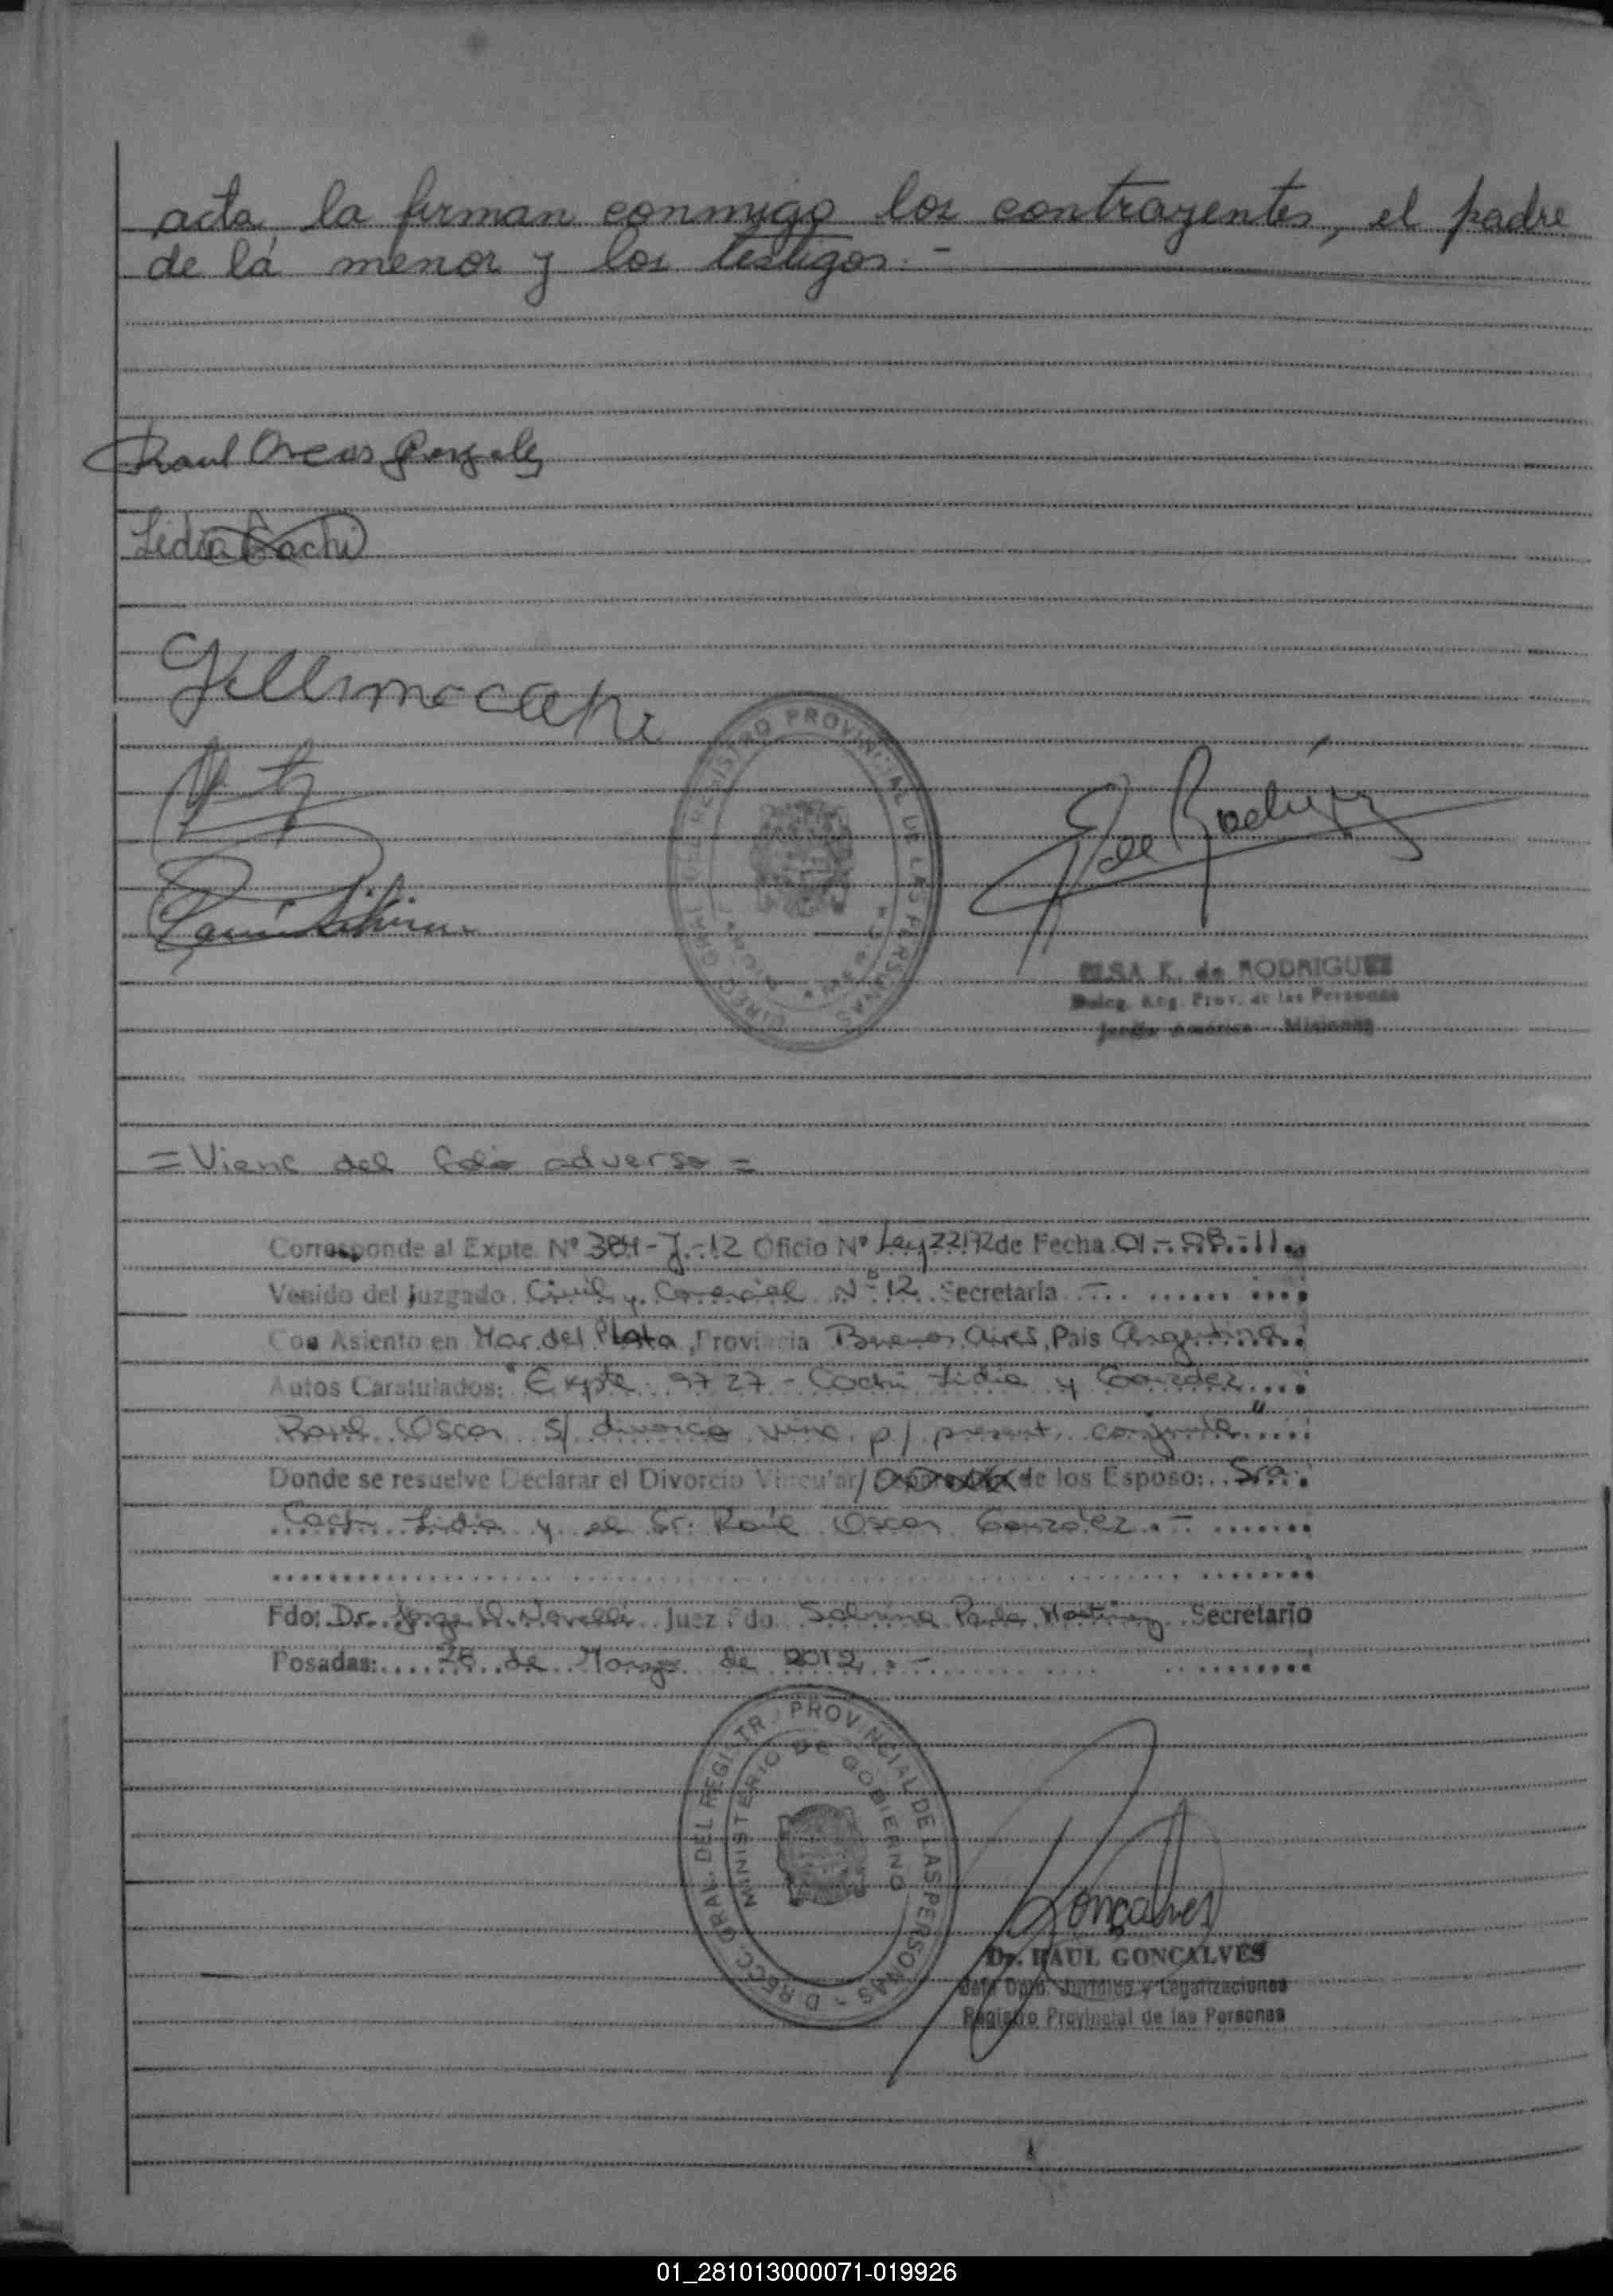 acta, la firman conmigo los contrayentes, el padre
de la menor y los testigos.-
Raul Oscar Gonzalez
Lidia Cachi
DIREC. GRAL. DEL REGISTRO PROVINCIAL DE LAS PERSONAS
de Rodríguez
ELSA K. de RODRIGUEZ
Deleg. Reg. Prov. de las Personas
Jardín América - Misiones
= Viene del folio adverso =
Corresponde al Expte. Nº 384-J-12 Oficio Nº Ley 22172 de Fecha 01-08-11.
Venido del Juzgado Civil y Comercial Nº 12 Secretaría -
Con Asiento en Mar del Plata, Provincia Buenos Aires, Pais Argentina.
Autos Caratulados: "Expte. 9727 - Cachi Lidia y González
Raul Oscar s/ divorcio vinc. p/ present. conjunta"
Donde se resuelve Declarar el Divorcio Vincular/ de los Esposo: Sra.
Cachi Lidia y el Sr. Raúl Oscar González.-
Fdo: Dr. Jorge Novelli Juez Fdo. Sabrina Paula Martinez Secretario
Posadas: 26 de Marzo de 2012.-
DIRECC. GRAL. DEL REGISTR. PROVINCIAL DE LAS PERSONAS -
MINISTERIO DE GOBIERNO
Gonçalves
Dr. RAUL GONCALVES
Jefe Dpto. Jurídico y Legalizaciones
Registro Provincial de las Personas
01_281013000071-019926